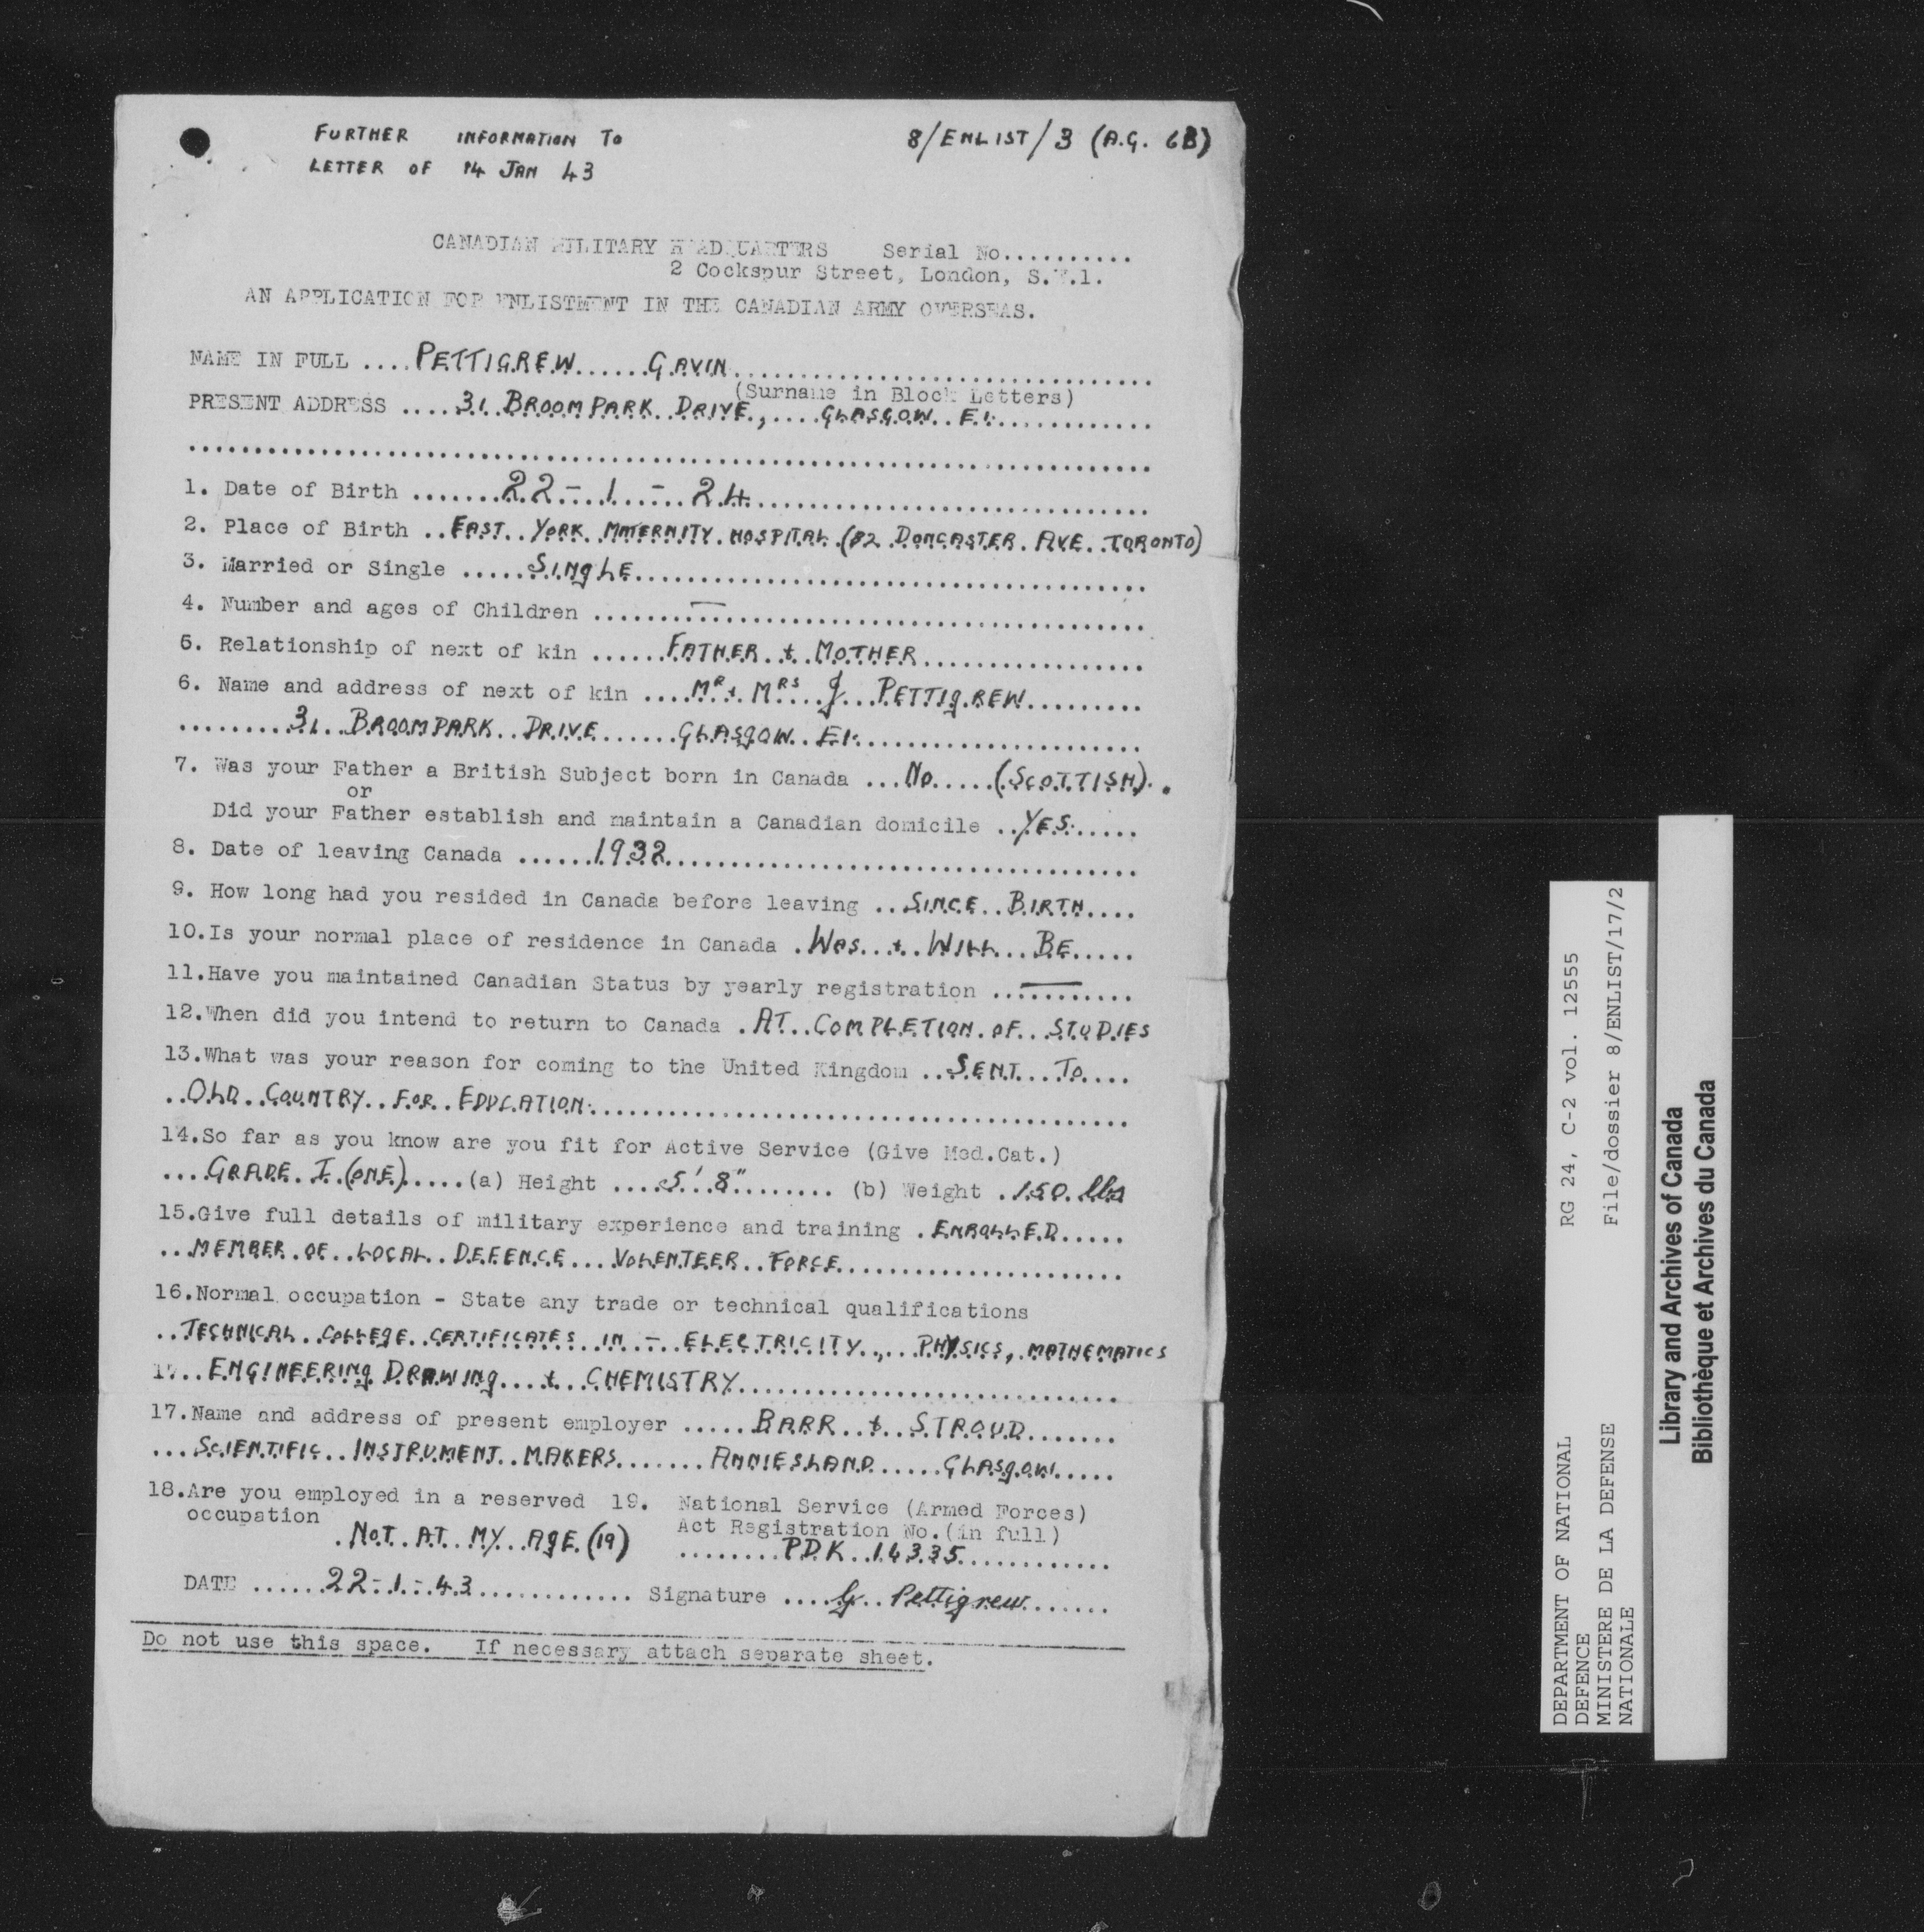 FURTHER INFORMATION TO
LETTER OF 14 JAN 43
8/ENLIST/3 (A.G. 6B)
CANADIAN MILITARY HEADQUARTERS Serial No..........
2 Cockspur Street, London, S.W.1.
AN APPLICATION FOR ENLISTMENT IN THE CANADIAN ARMY OVERSEAS.
NAME IN FULL .... PETTIGREW ...... GAVIN
(Surname in Block Letters)
PRESENT ADDRESS .... 31 BROOMPARK DRIVE, .... GLASGOW E1.
1. Date of Birth ....... 22 - 1 - 24
2. Place of Birth .. EAST YORK MATERNITY HOSPITAL (82 DONCASTER AVE. TORONTO)
3. Married or Single ..... SINGLE
4. Number and ages of Children ...... —
5. Relationship of next of kin ...... FATHER & MOTHER
6. Name and address of next of kin .... MR & MRS J PETTIGREW
31 BROOMPARK DRIVE ...... GLASGOW E1.
7. Was your Father a British Subject born in Canada ... NO ..... (SCOTTISH).
or
Did your Father establish and maintain a Canadian domicile .. YES
8. Date of leaving Canada ...... 1932
9. How long had you resided in Canada before leaving .. SINCE BIRTH
10.Is your normal place of residence in Canada . WAS & WILL BE
11.Have you maintained Canadian Status by yearly registration .. —
12.When did you intend to return to Canada . AT COMPLETION OF STUDIES
13.What was your reason for coming to the United Kingdom .. SENT TO
OLD COUNTRY FOR EDUCATION.
14.So far as you know are you fit for Active Service (Give Med.Cat.)
GRADE I (ONE) ..... (a) Height .... 5' 8" ........ (b) Weight . 150 lbs
15.Give full details of military experience and training . ENROLLED
MEMBER OF LOCAL DEFENCE VOLENTEER FORCE
16.Normal occupation - State any trade or technical qualifications
TECHNICAL COLLEGE CERTIFICATES IN - ELECTRICITY, PHYSICS, MATHEMATICS
ENGINEERING DRAWING & CHEMISTRY
17.Name and address of present employer ..... BARR & STROUD
SCIENTIFIC INSTRUMENT MAKERS ....... ANNIESLAND ...... GLASGOW
18.Are you employed in a reserved 19. National Service (Armed Forces)
occupation Act Registration No.(in full)
NOT AT MY AGE (19) ........ PDK 14335
DATE ...... 22-1-43 ............ Signature .... G Pettigrew
Do not use this space. If necessary attach separate sheet.
DEPARTMENT OF NATIONAL RG 24, C-2 vol. 12555
DEFENCE
MINISTERE DE LA DEFENSE File/dossier 8/ENLIST/17/2
NATIONALE
Library and Archives of Canada
Bibliothèque et Archives du Canada